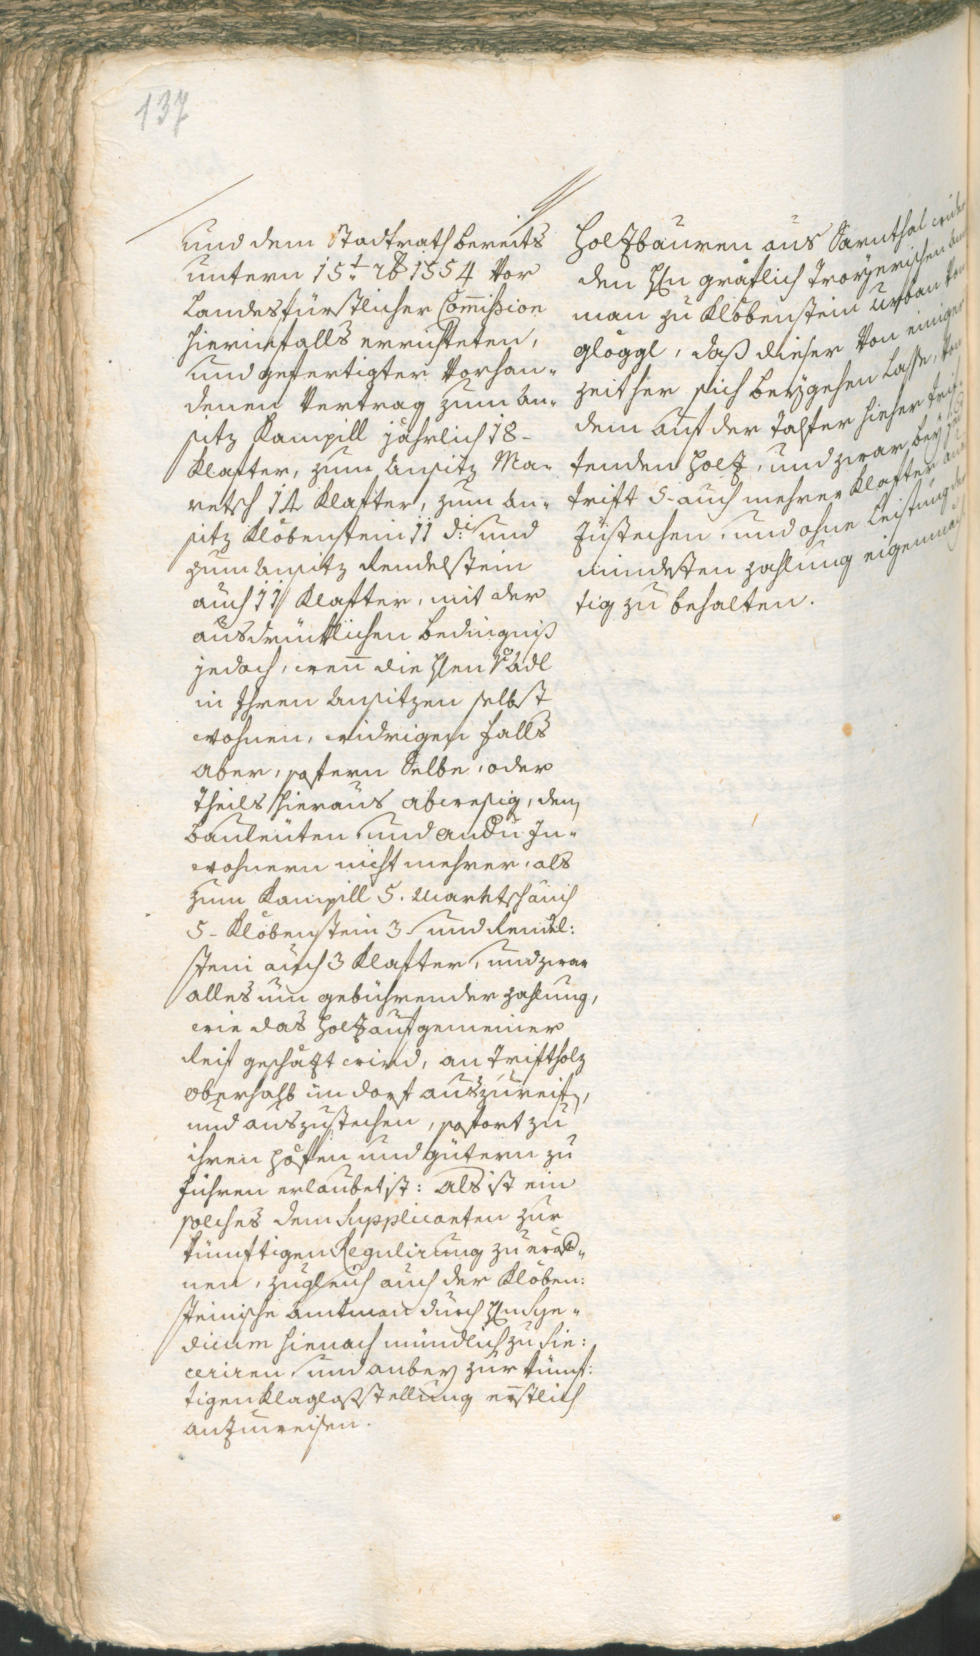 137
und dem Stadtrath bereits
untern 15t 7b 1554 Vor
Landesfürstlicher Com̅ißion
hierinfalls errichteten,
und gefertigter Vorhan¬
denen Vertrag zum An¬
sitz Kampill jährlich 18-
Klafter, zum Ansitz Ma¬
retsch 14 Klafter, zum An¬
sitz Klobenstein 11 d: und
zum Ansitz Rendelstein
auch 11 Klafter, mit der
ausdrüktlichen bedingniß
jedoch, wen̅ die Hen V: Adl
in Ihren Ansitzen selbst
wohnen, widrigen falls
aber, sofern Selbe, oder
theils hieraus abwesig, den
bauleüten und andern In¬
wohnern nicht mehrer, als
zum Kampill 5. Maretsch auch
5- Klobenstein 3- und Rendl:
stein auch 3 Klafter, und zwar
alles um gebührender zahlung,
wie das Holz auf gemeiner
Reif geschätzt wird, an Triftholz
oberhalb im dorf auszureift,
und auszustechen, sofort zu
ihren höffen und gütern zu
führen erlaubet ist: Als ist ein
solches dem Supplicanten zur
künftigen Regulirung zu eröf¬
nen, zugleich auch der Kloben:
steinische Amtman durch Hn Syn¬
dicum hienach mündlich zu Sin:
ceriren und anbey zur künf:
tigen Klaglosstellung erstlich
anzuweisen.
Holzbauren aus Sarnthal wider
den Hn gräflich Troyerischen Amt
man zu Klobenstein Urban Von
gloggl, daß dieser Von einiger
zeit her sich beygehen lasse, Von
dem auf der Talfer hieher trif¬
tenden Holz, und zwar bey
trift 5- auch mehrer Klafter aus
zustechen, und ohne Leistung der
mindesten zahlung eigenmäch
tig zu behalten.